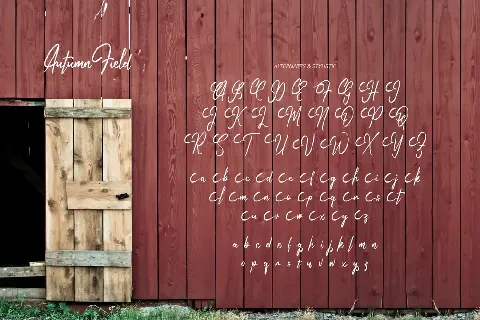 Autumn Field
ALTERNATES & STYLISTIC
A B C D E F G H I
J K L M N O P Q
R S T U V W X Y Z
ca cb cc cd ce cf cg ch ci cj ck
cl cm cn co cp cq cr cs ct
cu cv cw cx cy cz
a b c d e f g h i j k l m n
o p q r s t u v w x y z